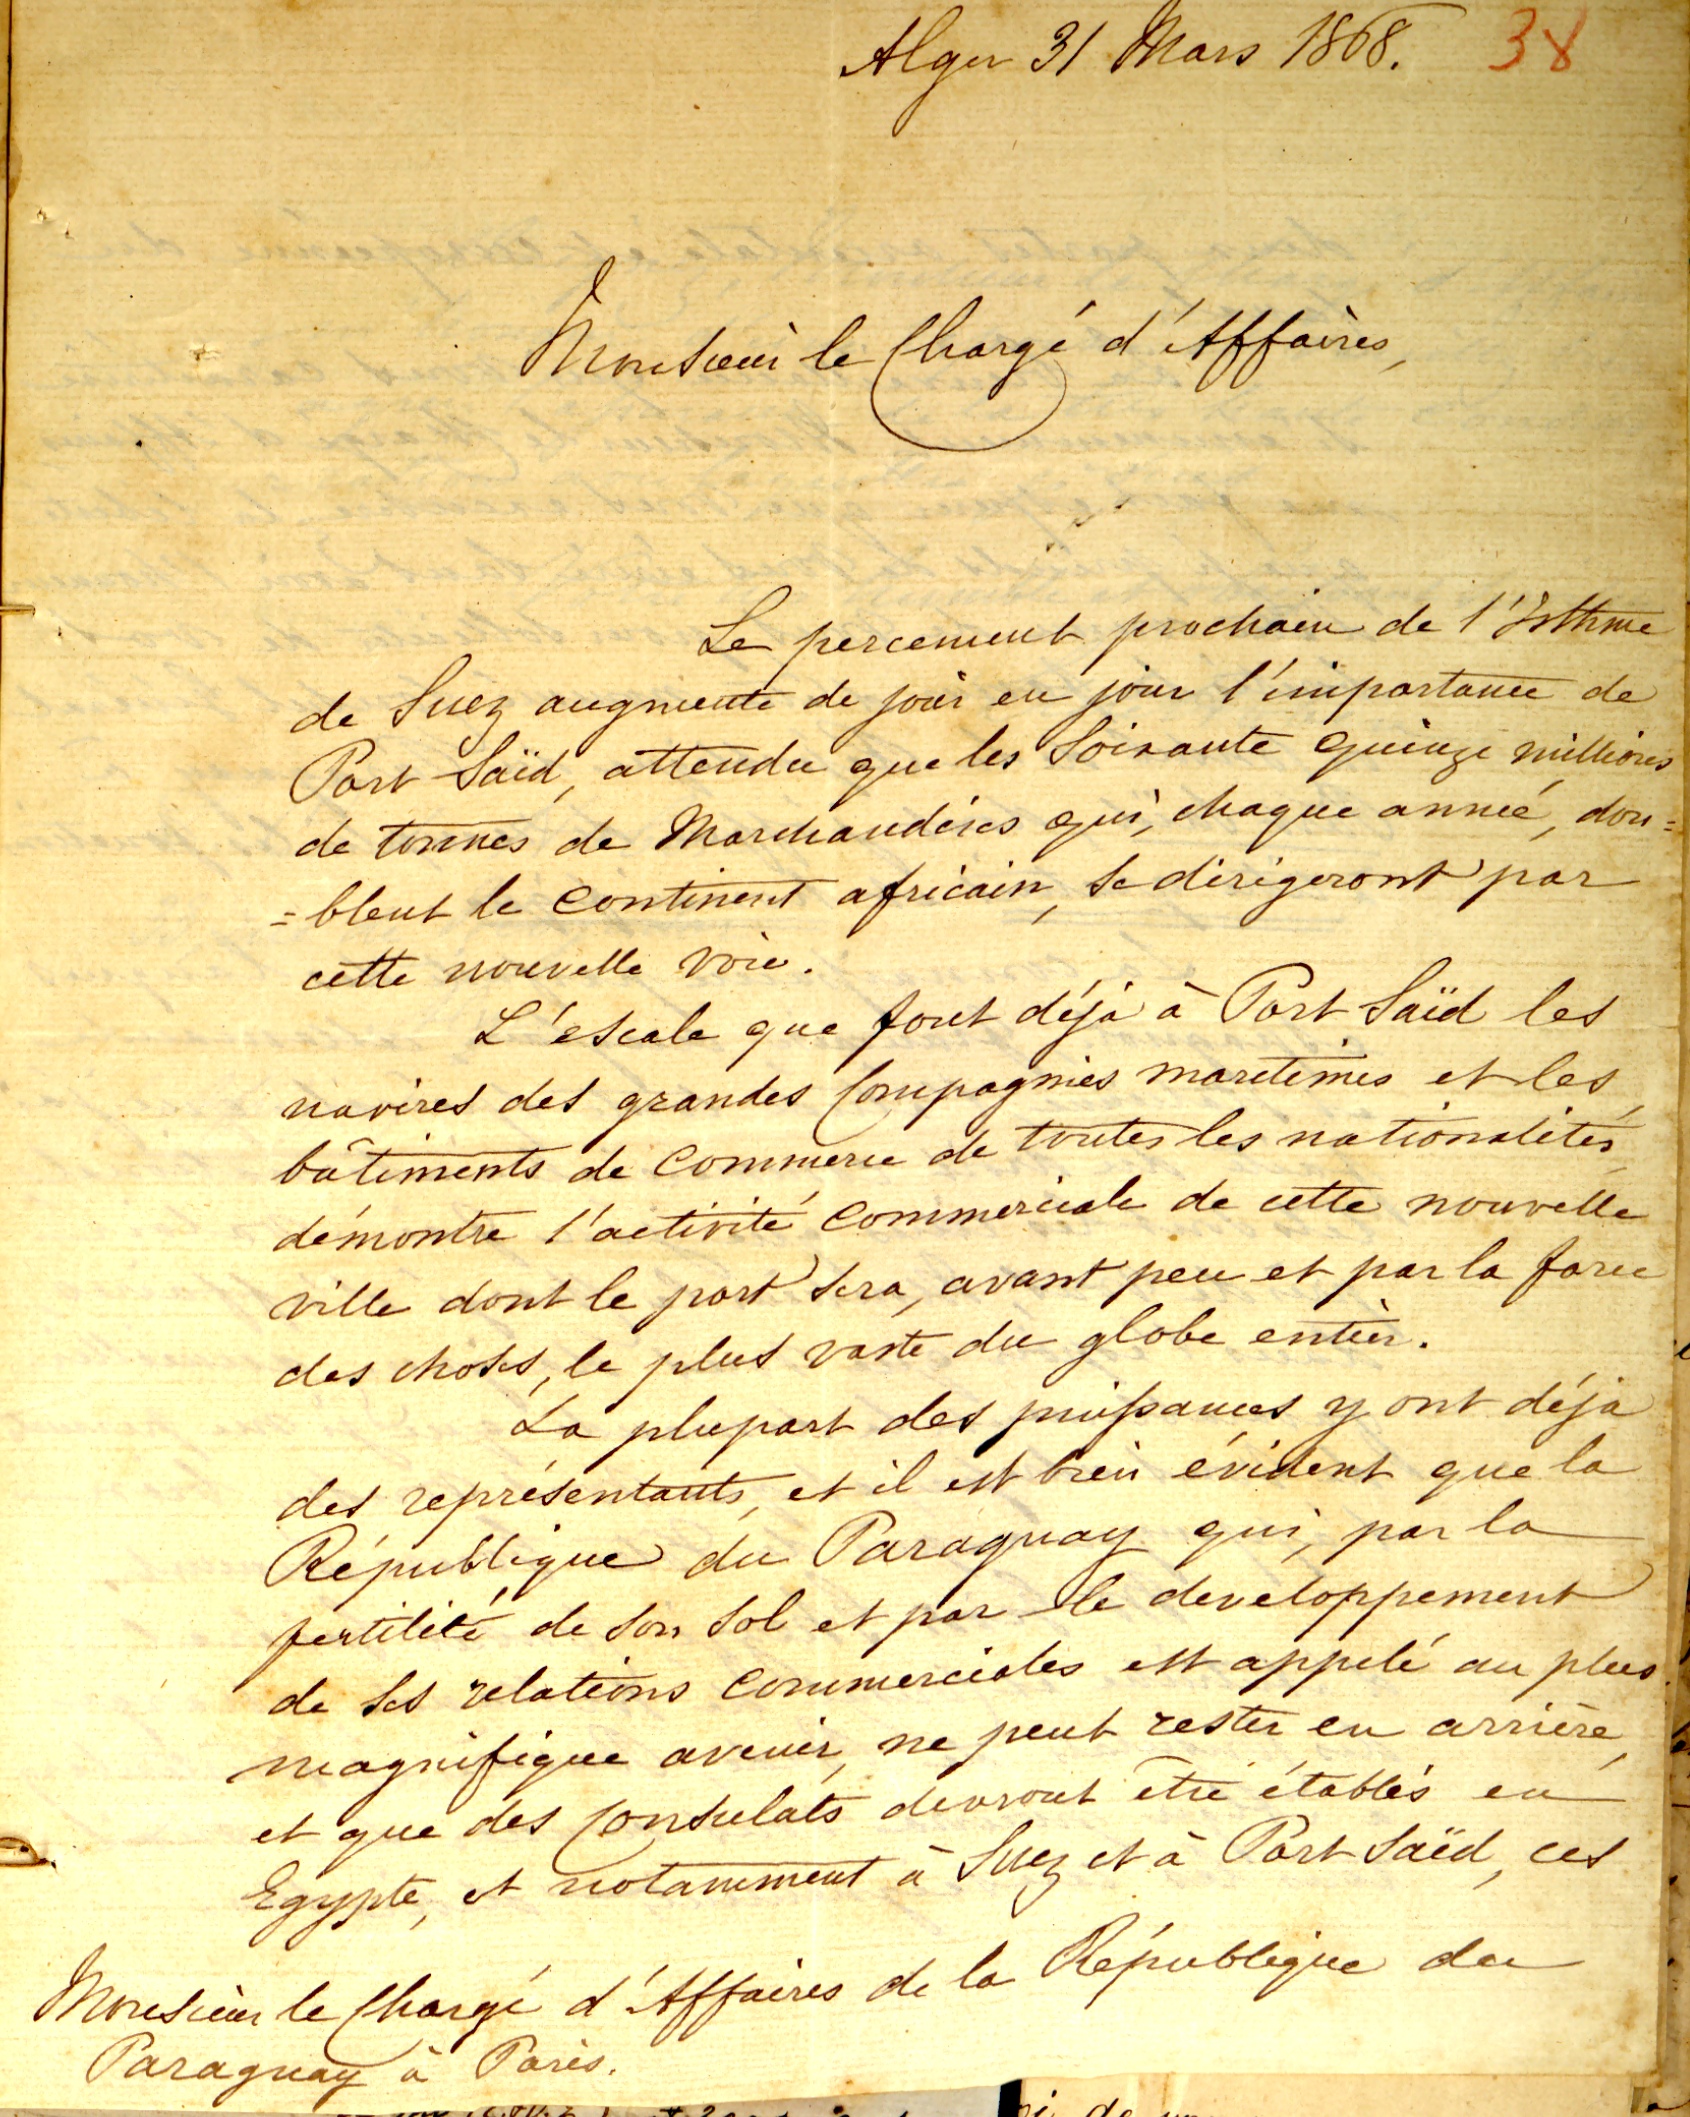 Alger 31 Mars 1868. 38
Monsieur le Chargé d'Affaires,
Le percement prochain de l'Isthme
de Suez augmente de jour en jour l'importance de
Port Saïd, attendu que les Soixante quinze millions
de tonnes de Marchandises qui, chaque année, dou=
=blent le continent africain, se dirigeront par
cette nouvelle voie.
L'escale que font déjà à Port Saïd les
navires des grandes Compagnies maritimes et les
bâtiments de commerce de toutes les nationalités,
démontre l'activité commerciale de cette nouvelle
ville dont le port sera, avant peu et par la force
des choses, le plus vaste du globe entier.
La plupart des puissances y ont déjà
des représentants, et il est bien évident que la
République du Paraguay qui, par la
fertilité de son sol et par le developpement
de ses relations commerciales est appelé au plus
magnifique avenir, ne peut rester en arrière,
et que des Consulats devront être établis en
Egypte, et notamment à Suez et à Port Saïd, ces
Monsieur le Chargé d'Affaires de la République du
Paraguay à Paris.